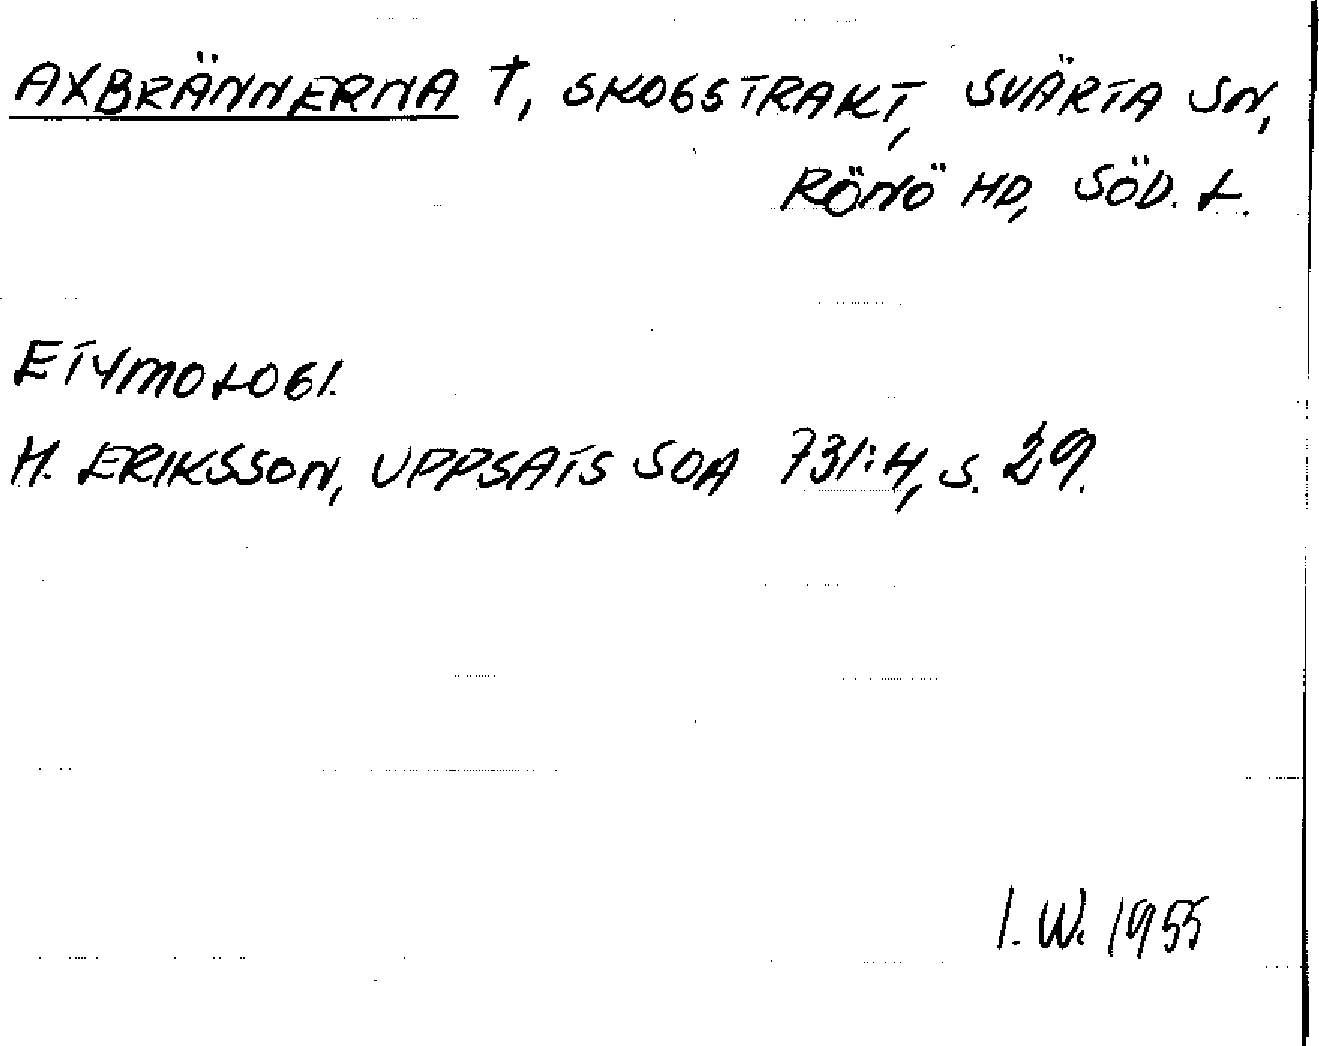 AXBRÄNNERNA †, SKOGSTRAKT, SVÄRTA SN,
RÖNÖ HD, SÖD. L.
ETYMOLOGI.
H. ERIKSSON, UPPSATS SOA 731:4, S. 29.
I. W. 1955